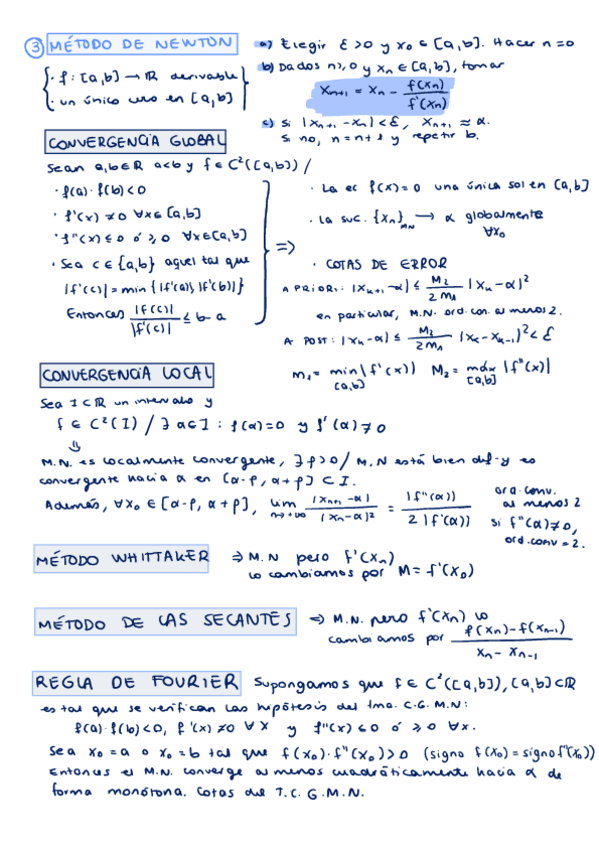 ③ MÉTODO DE NEWTON
a) Elegir ε>0 y x₀ ∈ [a,b]. Hacer n=0
· f: [a,b] → ℝ derivable
· un único cero en [a,b]
b) Dados n≥0 y xₙ ∈ [a,b], tomar
xₙ₊₁ = xₙ - f(xₙ) / f'(xₙ)
c) Si |xₙ₊₁ - xₙ| < ε, xₙ₊₁ ≈ α.
Si no, n = n+1 y repetir b.
CONVERGENCIA GLOBAL
Sean a,b∈ℝ a<b y f∈C²([a,b]) /
· f(a)·f(b)<0
· f'(x) ≠ 0 ∀x∈[a,b]
· f''(x) ≤ 0 ó ≥ 0 ∀x∈[a,b]
· Sea c∈{a,b} aquel tal que
|f'(c)| = min{|f'(a)|, |f'(b)|}
Entonces |f(c)| / |f'(c)| ≤ b-a
=>
· La ec f(x)=0 una única sol en [a,b]
· La suc. {xₙ}MN → α globalmente
∀x₀
· COTAS DE ERROR
A PRIORI: |xₖ₊₁ - α| ≤ M₂ / 2m₁ |xₖ - α|²
en particular, M.N. ord.con. al menos 2.
A POST: |xₖ - α| ≤ M₂ / 2m₁ |xₖ - xₖ₋₁|² < ε
m₁ = min |f'(x)| M₂ = máx |f''(x)|
[a,b] [a,b]
CONVERGENCIA LOCAL
Sea I⊂ℝ un intervalo y
f ∈ C²(I) / ∃ α∈I : f(α)=0 y f'(α) ≠ 0
⇓
M.N. es localmente convergente, ∃ρ>0 / M.N está bien def. y es
convergente hacia α en [α-ρ, α+ρ] ⊂ I.
Además, ∀x₀ ∈ [α-ρ, α+ρ], lim n→+∞ |xₙ₊₁ - α| / |xₙ - α|² = |f''(α)| / 2|f'(α)|
ord.conv.
al menos 2
si f''(α)≠0,
ord.conv = 2.
MÉTODO WHITTAKER ⇒ M.N pero f'(xₙ)
lo cambiamos por M = f'(x₀)
MÉTODO DE LAS SECANTES ⇒ M.N. pero f'(xₙ) lo
cambiamos por f(xₙ) - f(xₙ₋₁) / xₙ - xₙ₋₁
REGLA DE FOURIER Supongamos que f∈C²([a,b]), [a,b]⊂ℝ
es tal que se verifican las hipótesis del tma. C.G.M.N:
f(a)·f(b)<0, f'(x) ≠0 ∀x y f''(x) ≤ 0 ó ≥ 0 ∀x.
Sea x₀=a o x₀=b tal que f(x₀)·f''(x₀)>0 (signo f(x₀) = signo f''(x₀))
Entonces el M.N. converge al menos cuadráticamente hacia α de
forma monótona. Cotas del T.C.G.M.N.